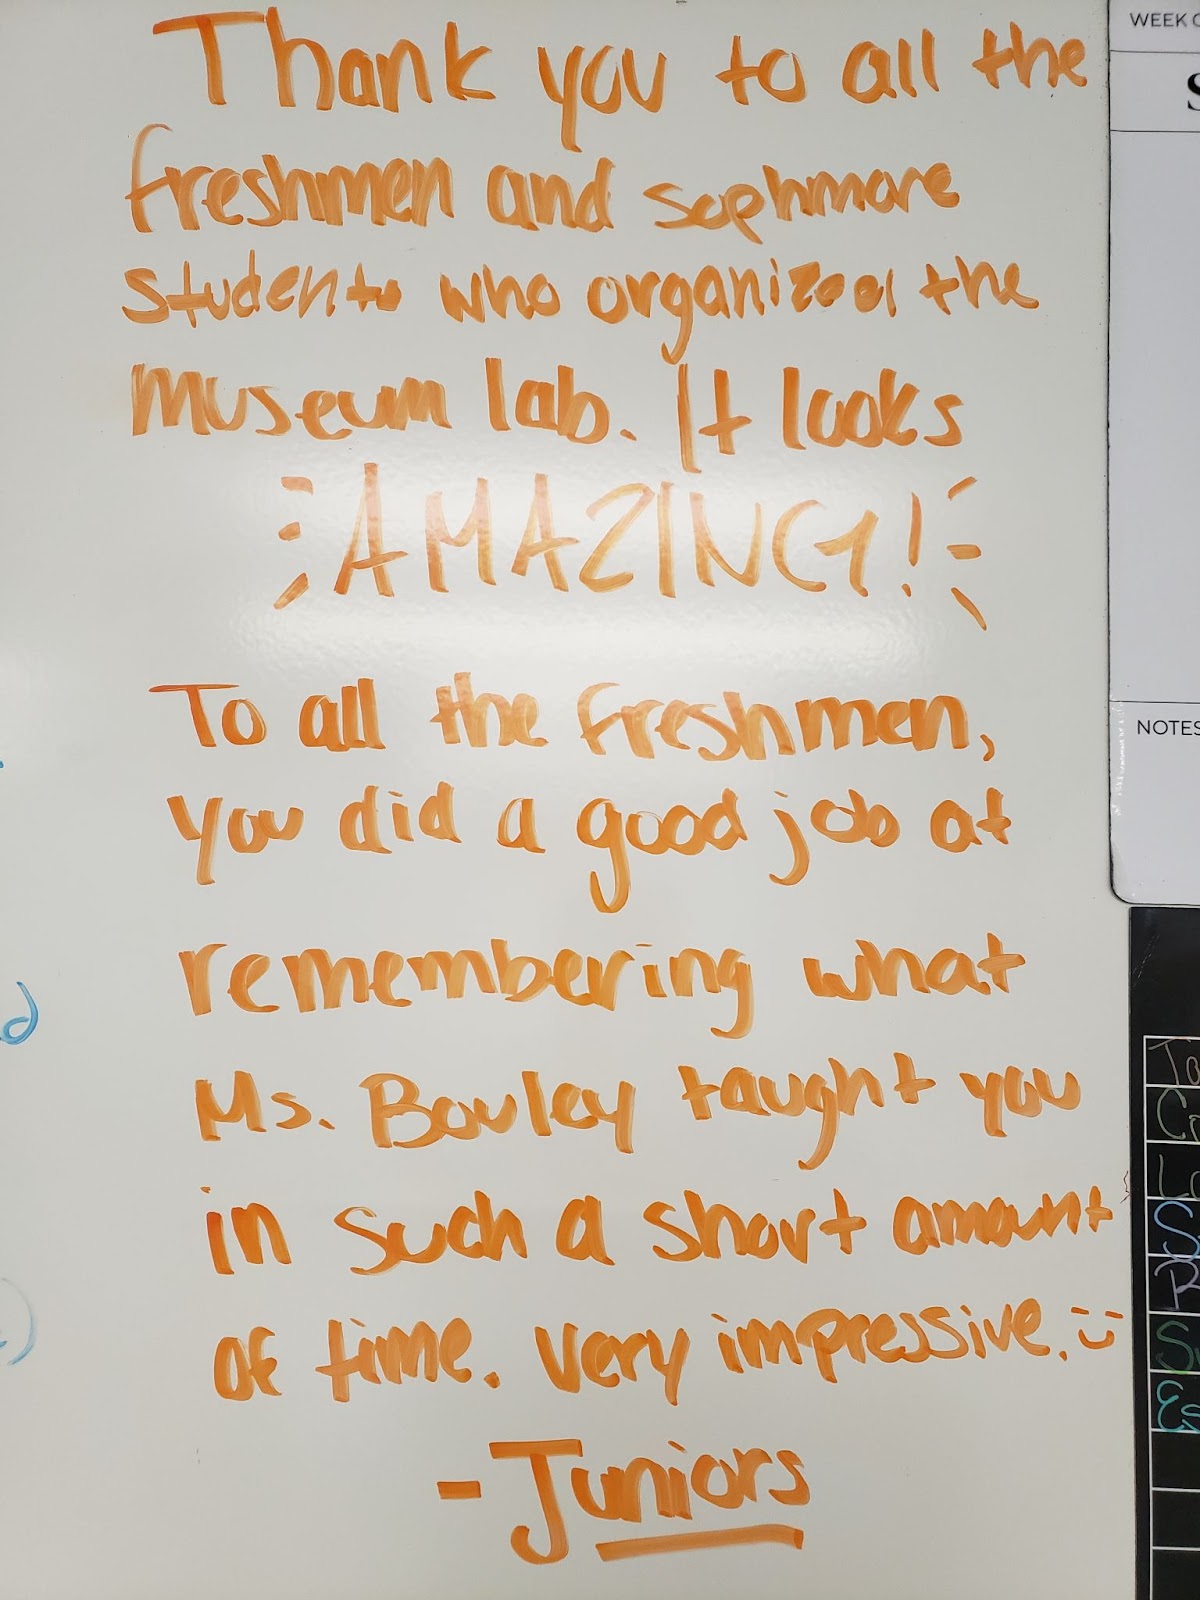 Thank you to all the
freshmen and sophmore
students who organized the
museum lab. It looks
AMAZING!
To all the freshmen,
you did a good job at
remembering what
Ms. Bouley taught you
in such a short amount
of time. Very impressive. :)
- Juniors
WEEK O
S
NOTES